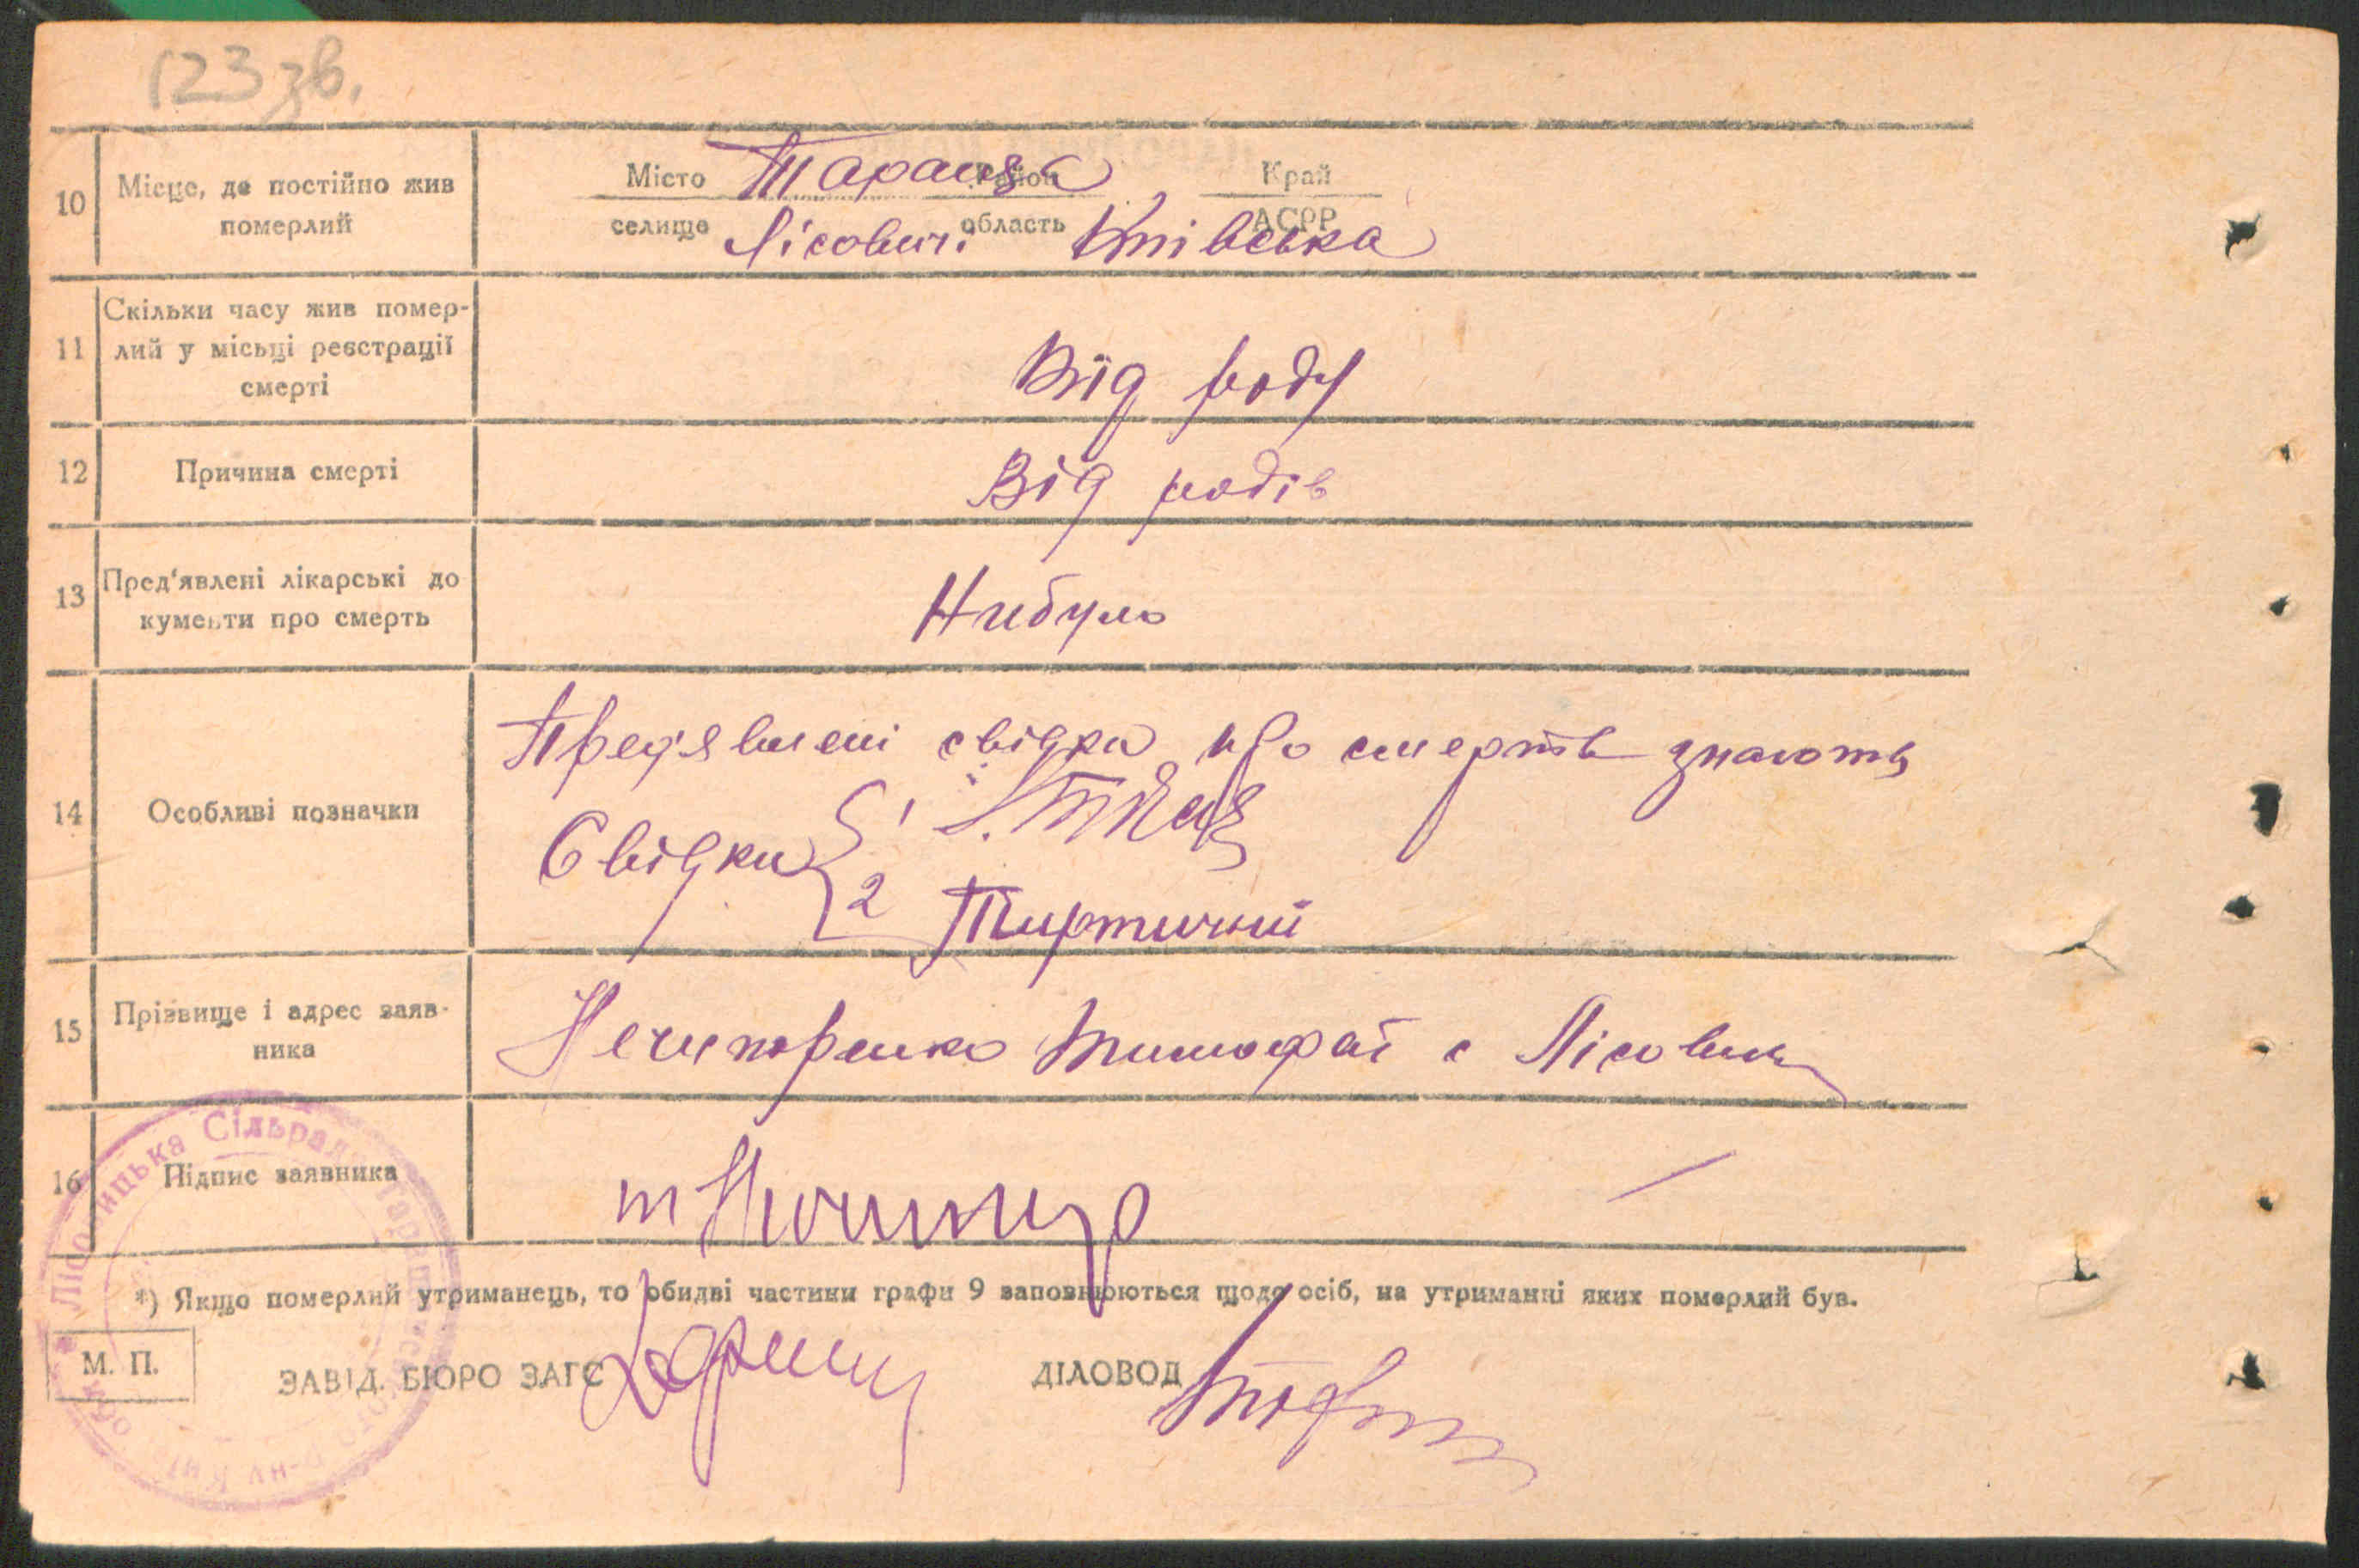 123 зв.
10 Місце, де постійно жив померлий
Місто Тараща Район Край
селище Лісовичі область Київська АСРР
11 Скільки часу жив помер-
лий у місьці реєстрації
смерті
Від роду
12 Причина смерті Від родів
13 Пред'явлені лікарські до
кументи про смерть
Нибуло
14 Особливі позначки
Предявлені свідки про смерть знають
Свідки 1
2
15 Прізвище і адрес заяв-
ника
Нечипоренко Тимофай с Лісович
16 Підпис заявника
*) Якщо померлий утриманець, то обидві частини графи 9 заповнюються щодо осіб, на утриманні яких померлий був.
М. П.
ЗАВІД. БЮРО ЗАГС ДІЛОВОД
Лісовицька Сільрада Таращанського Р-ну